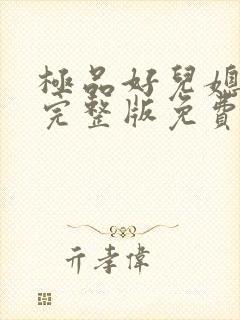 極品好兒媳
完整版免費
亓孝偉